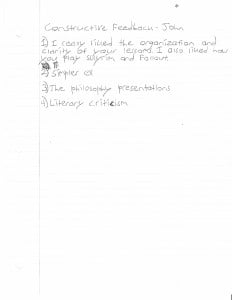 Constructive Feedback - John
1) I really liked the organization and
clarity of your lessons. I also liked how
you play Skyrim and Fallout
2) Simpler
3) The philosophy presentations
4) Literary criticism